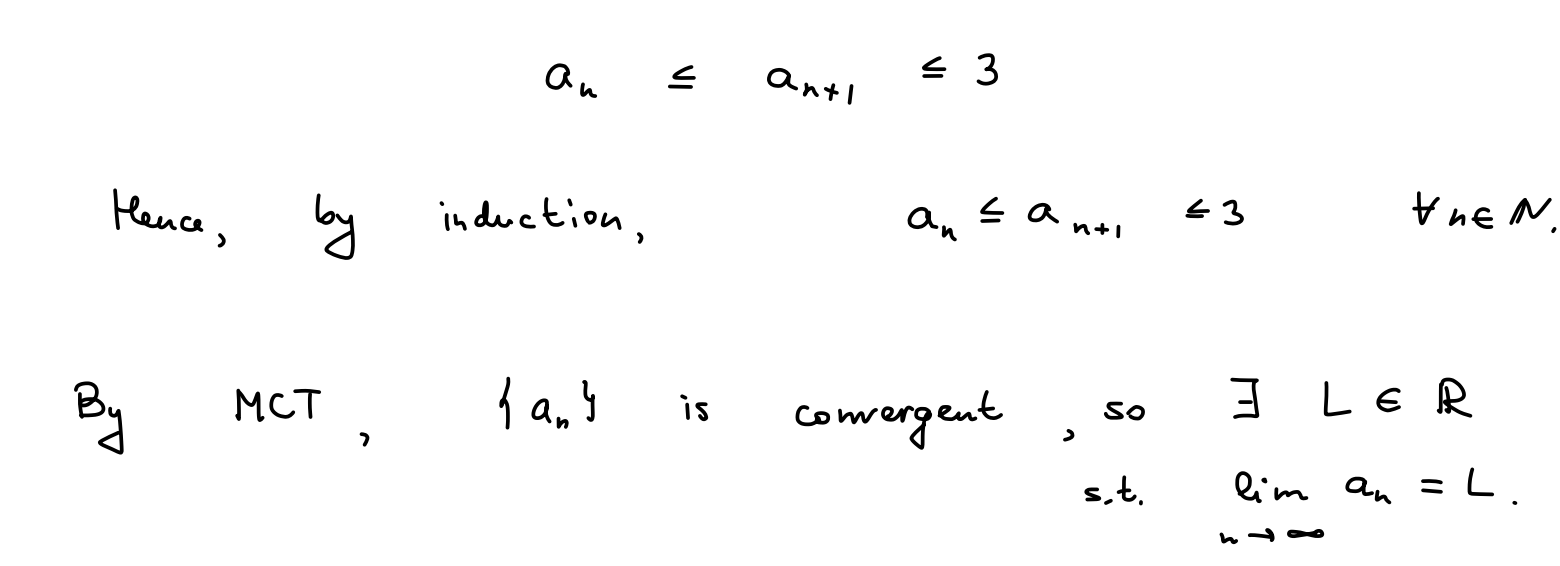 aₙ ≤ aₙ₊₁ ≤ 3
Hence, by induction, aₙ ≤ aₙ₊₁ ≤ 3 ∀ n ∈ ℕ.
By MCT, {aₙ} is convergent, so ∃ L ∈ ℝ
s.t. lim aₙ = L.
n → ∞